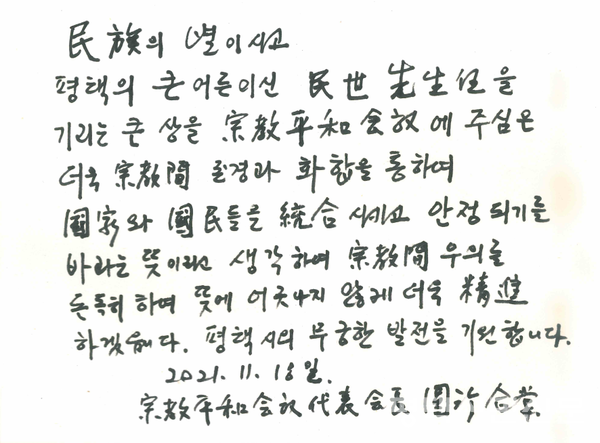 民族의 별이시고
평택의 큰 어른이신 民世 先生任을
기리는 큰 상을 宗敎平和会议에 주심은
더욱 宗敎間 존경과 화합을 통하여
國家와 國民들을 統合시키고 안정되기를
바라는 뜻이라고 생각하며 宗敎間 우의를
돈독히 하며 뜻에 어긋나지 않게 더욱 精進
하겠읍니다. 평택시의 무궁한 발전을 기원합니다.
2021. 11. 18일.
宗敎平和会议 代表会長 圓行 合掌